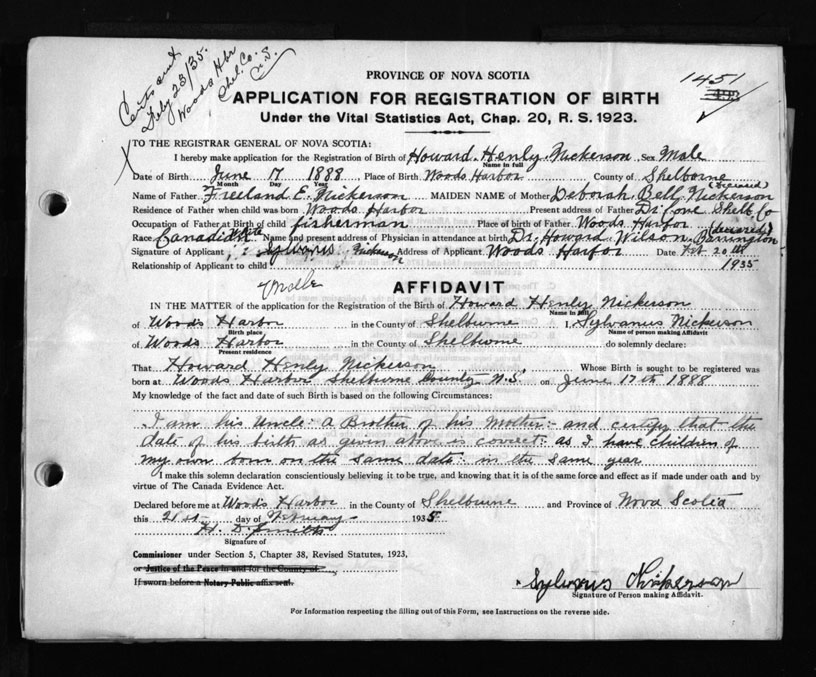 Feby 23/35.
Woods Hbr
Shel. Co.
N.S.
PROVINCE OF NOVA SCOTIA
1451
APPLICATION FOR REGISTRATION OF BIRTH
Under the Vital Statistics Act, Chap. 20, R. S. 1923.
TO THE REGISTRAR GENERAL OF NOVA SCOTIA:
I hereby make application for the Registration of Birth of Howard Henly Nickerson Sex Male
Name in full
Date of Birth June 17 1888 Place of Birth Woods Harbor County of Shelborne
Month Day Year
(Deceased)
Name of Father Freeland E. Nickerson MAIDEN NAME of Mother Deborah Bell Nickerson
Residence of Father when child was born Woods Harbor Present address of Father Shelb Co
Occupation of Father at Birth of child fisherman Place of birth of Father Woods Harbor
(deceased)
Race Canadian Name and present address of Physician in attendance at birth Dr. Howard Wilson Barrington
Signature of Applicant Sylvanus Nickerson Address of Applicant Woods Harbor Date Feb 20th
Relationship of Applicant to child 1935
AFFIDAVIT
IN THE MATTER of the application for the Registration of the Birth of Howard Henly Nickerson
Name in full
of Woods Harbor in the County of Shelburne I, Sylvanus Nickerson
Birth place Name of person making Affidavit
of Woods Harbor in the County of Shelburne do solemnly declare:
Present residence
That Howard Henly Nickerson Whose Birth is sought to be registered was
born at Woods Harbor Shelburne County N.S. on June 17th 1888
My knowledge of the fact and date of such Birth is based on the following Circumstances:
I am his Uncle: a Brother of his Mother:- and certify that the
date of his birth as given above is correct: as I have children of
my own born on the same date: in the same year
I make this solemn declaration conscientiously believing it to be true, and knowing that it is of the same force and effect as if made under oath and by
virtue of The Canada Evidence Act.
Declared before me at Woods Harbor in the County of Shelburne and Province of Nova Scotia
this 21st day of February 1935
H. D. Smith
Signature of
Commissioner under Section 5, Chapter 38, Revised Statutes, 1923,
or Justice of the Peace in and for the County of
If sworn before a Notary Public affix seal.
Sylvanus Nickerson
Signature of Person making Affidavit.
For Information respecting the filling out of this Form, see Instructions on the reverse side.